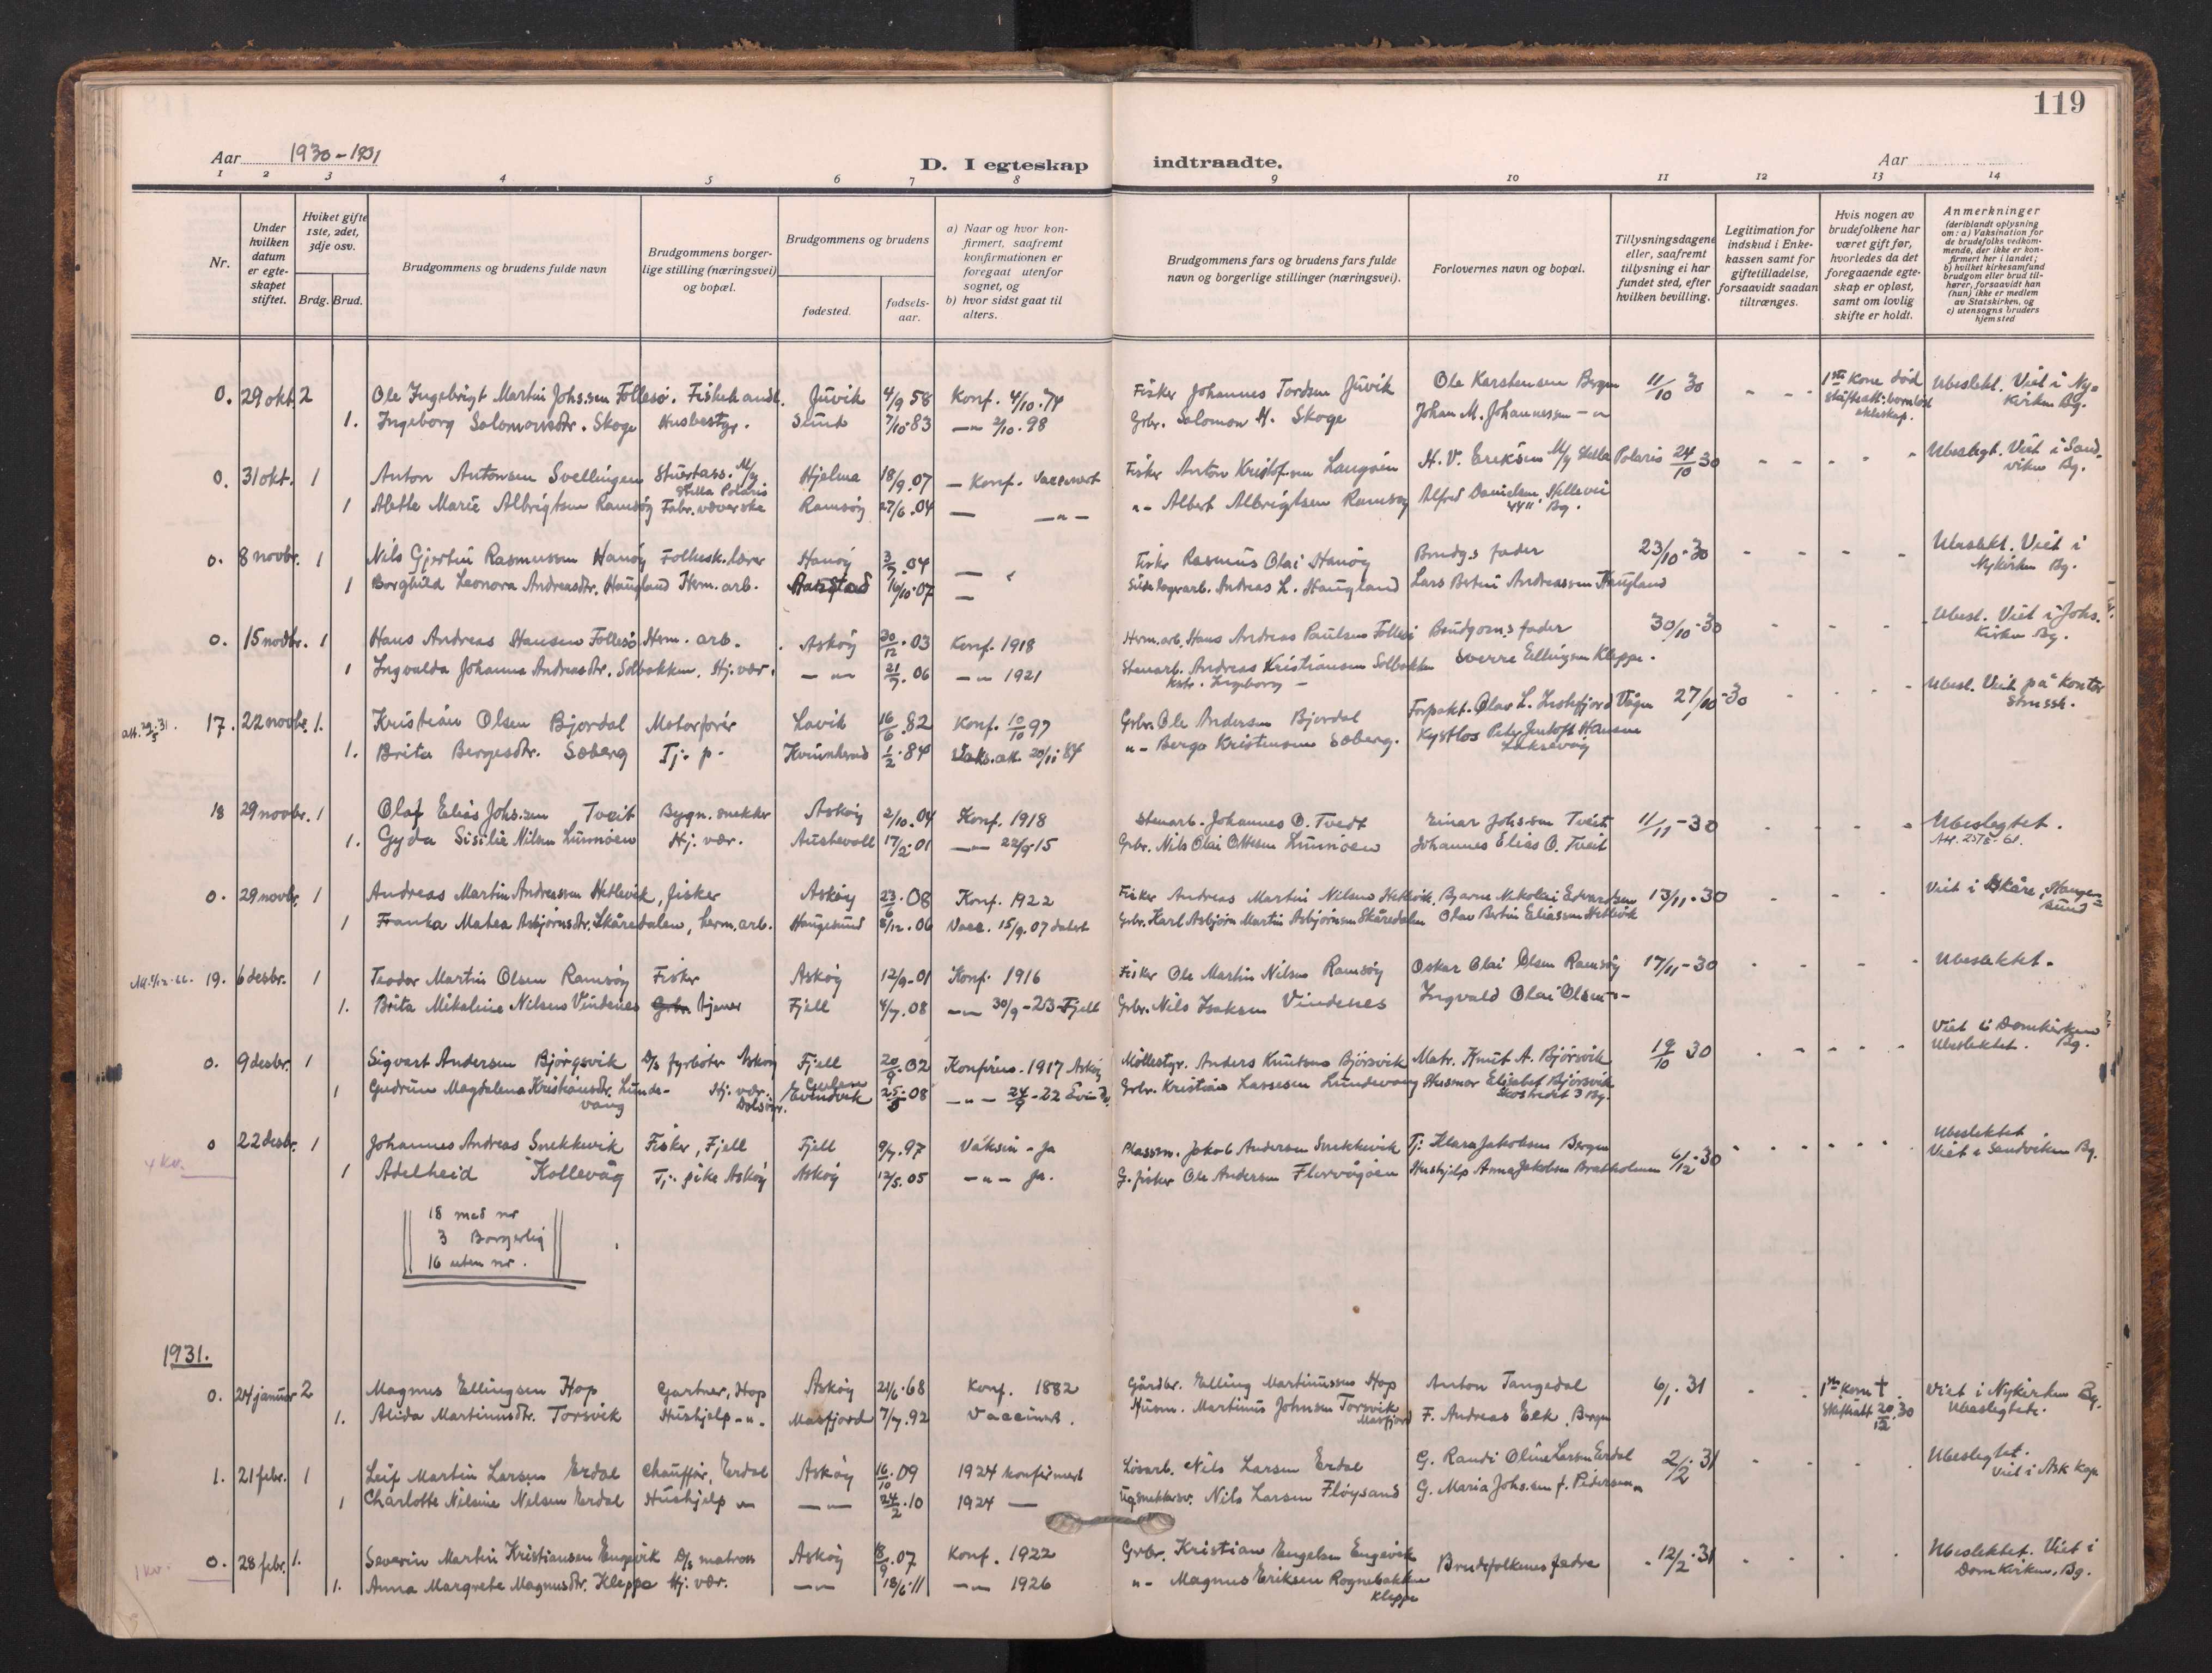 119
Aar 1930-1931
D. I egteskap indtraadte.
Aar
1 2 3 4 5 6 7 8 9 10 11 12 13 14
Nr.
Under hvilken datum er egteskapet stiftet.
Hviket gifte 1ste, 2det, 3dje osv.
Brdg. Brud.
Brudgommens og brudens fulde navn
Brudgommens borgerlige stilling (næringsvei) og bopæl.
Brudgommens og brudens
fødested.
fødselsaar.
a) Naar og hvor konfirmert, saafremt konfirmationen er foregaat utenfor sognet, og
b) hvor sidst gaat til alters.
Brudgommens fars og brudens fars fulde navn og borgerlige stillinger (næringsvei).
Forlovernes navn og bopæl.
Tillysningsdagene eller, saafremt tillysning ei har fundet sted, efter hvilken bevilling.
Legitimation for indskud i Enkekassen samt for giftetilladelse, forsaavidt saadan tiltrænges.
Hvis nogen av brudefolkene har været gift før, hvorledes da det foregaaende egteskap er opløst, samt om lovlig skifte er holdt.
Anmerkninger (deriblandt oplysning om: a) Vaksination for de brudefolks vedkommende, der ikke er konfirmert her i landet; b) hvilket kirkesamfund brudgom eller brud tilhører, forsaavidt han (hun) ikke er medlem av Statskirken, og c) utensogns bruders hjemsted
0. 29 okt. 2 Ole Ingebrigt Martin Johs.sen Follesø. Fiskehandl. Juvik 4/9 58 Konf. 4/10.74 Fisker Johannes Tordsen Juvik Ole Karstensen Bergen 11/10 30 - - 1ste Kone død Ubeslekt. Viet i Nykirken Bg.
1. Ingeborg Salomonsdtr. Skoge Husbestyr. Sund 7/10.83 -"- 2/10.98 Grbr. Salomon H. Skoge Johan M. Johannessen -"-
0. 31 okt. 1 Anton Antonsen Svellingen Stuertass. M/y Stella Polaris Hjelma 18/9.07 - Konf. Vaccinert Fisker Anton Kristofsen Langøen H. V. Eriksen M/y Stella Polaris 24/10 30 - - - - Ubeslegt. Viet i Sandviken Bg.
1 Alette Marie Albrigtsen Ramsøy Fabr. væverske Ramsøy 27/6.04 - -"- "- Albert Albrigtsen Ramsøy Alfred Danielsen, Hellevei 44" Bg.
0. 8 novbr. 1 Nils Gjertin Rasmussen Hanøy Folkesk.lærer Hanøy 3/7.04 - Fisker Rasmus Olai Hanøy Brudg.s fader 23/10-30 - - - - Ubeslekt. Viet i Nykirken Bg.
1 Borghild Leonora Andreasdtr. Haugland Herm. arb. 16/10.07 - Andreas L. Haugland Lars Bertin Andreassen Haugland
0. 15 novbr. 1 Hans Andreas Hansen Follesø Herm. arb. Askøy 30/12.03 Konf. 1918 Herm.arb. Hans Andreas Paulsen Follesø Brudgom.s fader 30/10-30 - - - Ubesl. Viet i Johs. Kirken Bg.
1 Ingvalda Johanna Andreasdtr. Solbakken. Hj. vær. -"- 21/7.06 -"- 1921 Stenarb. Andreas Kristiansen Solbakken Sverre Ellingsen Kleppe.
17. 22 novbr. 1. Kristian Olsen Bjordal Motorfører Lavik 16/6.82 Konf. 10/10 97 Grbr. Ole Andersen Bjordal Forpakt. Olav L. Vågen 27/10-30 - - - Ubesl. Viet på kontor
1. Brita Bergesdtr. Soberg Tj. p. Kvinnherad 1/2.84 Vaks.att. 20/11 84 "- Berge Kristensen Soberg. Peter Hansen Laksevåg
18 29 novbr. 1 Olaf Elias Johs.sen Tveit Bygn. snekker Askøy 2/10.04 Konf. 1918 Stenarb. Johannes O. Tvedt Einar Johs.sen Tveit 11/11-30 - - - Ubeslegtet.
1. Gyda Sisilie Nilsen Lunnøen Hj. vær. Austevoll 17/2.01 -"- 22/9.15 Grbr. Nils Olai Ottesen Lunnøen Johannes Elias O. Tveit
0. 29 novbr. 1 Andreas Martin Andreassen Hetlevik, fisker Askøy 23/6.08 Konf. 1922 Fisker Andreas Martin Nilsen Hetlevik. Bjarne Nikolai Edvardsen 13/11.30 - - - Viet i Skåre, Haugesund
1 Franka Matea Asbjørnsdtr. Skåredalen, herm.arb. Haugesund 8/12.06 Vacc. 15/9.07 Grbr. Karl Asbjørn Martin Asbjørnsen Skåredalen Olav Bertin Eliassen Hetlevik
19. 6 desbr. 1 Teodor Martin Olsen Ramsøy Fisker Askøy 12/9-01 Konf. 1916 Fisker Ole Martin Nilsen Ramsøy Oskar Olai Olsen Ramsøy 17/11-30 - - - - Ubeslektet.
1. Brita Mikaline Nilsen Vindenes tjener Fjell 4/7.08 -"- 30/9-23-Fjell Grbr. Nils Isaksen Vindenes Ingvald Olai Olsen -"-
0. 9 desbr. 1 Sigvart Andersen Bjørgsvik D/s fyrbøter Askøy Fjell 20/9.02 Konfirm. 1917 Askøy Møllestyr. Anders Knutsen Bjørsvik Matr. Knut A. Bjørsvik 19/10 30 - - - - Viet i Domkirken Bg. Ubeslektet.
1 Gudrun Magdalena Kristiansdtr. Lundevang Hj. vær. Gulen Evindvik 25/8.08 -"- 24/9-22 Grbr. Kristian Lassesen Lundevang Husmor Elisabet Bjørsvik
0 22 desbr. 1 Johannes Andreas Snekkevik Fisker, Fjell Fjell 9/7.97 Vaksin - Ja Plassm. Jakob Andersen Snekkevik Tj. Klara Jakobsen Bergen 6/12-30 - - - - Ubeslektet. Viet i Sandviken Bg.
4 kv.
1 Adelheid Kollevåg Tj. pike Askøy Askøy 12/5.05 -"- Ja. G. fisker Ole Andersen Florvågøen Hushjelp Anna Jakobsen Bratholmen
18 med nr
3 Borgerlig
16 uten nr.
1931.
0. 24 januar 2 Magnus Ellingsen Hop Gartner, Hop Askøy 21/6.68 Konf. 1882 Gårdbr. Elling Martinussen Hop Anton Tangedal 6/1 31 - - 1ste Kone † Skifteatt 20/12.30 Viet i Nykirken Bg. Ubeslegtede.
1. Alida Martinusdtr. Torsvik Hushjelp -"- Masfjord 7/7.92 Vaccinert. Husm. Martinus Johnsen Torsvik Masfjord F. Andreas Eek, Bergen
1. 21 febr. 1 Leif Martin Larsen Erdal Chauffør, Erdal Askøy 16/10.09 1924 konfirmert Løsarb. Nils Larsen Erdal G. Randi Oline Larsen Erdal 2/2.31 - - - - Ubeslegtet. Viet i Ask Kap.
1 Charlotte Nilsine Nilsen Erdal Hushjelp -"- -"- 24/2.10 1924 - Nils Larsen Fløysand G. Maria Johs.sen f. Pedersen "
1 kv.
0. 28 febr. 1. Severin Martin Kristiansen Engevik D/s matros Askøy 18/9.07 Konf. 1922 Grbr. Kristian Engelsen Engevik Brudefolkenes fedre 12/2.31 - - - - Ubeslektet. Viet i Domkirken, Bg.
1. Anna Margrete Magnusdtr. Kleppe Hj. vær. -"- 18/6.11 -"- 1926 "- Magnus Eriksen Rognebakken Kleppe